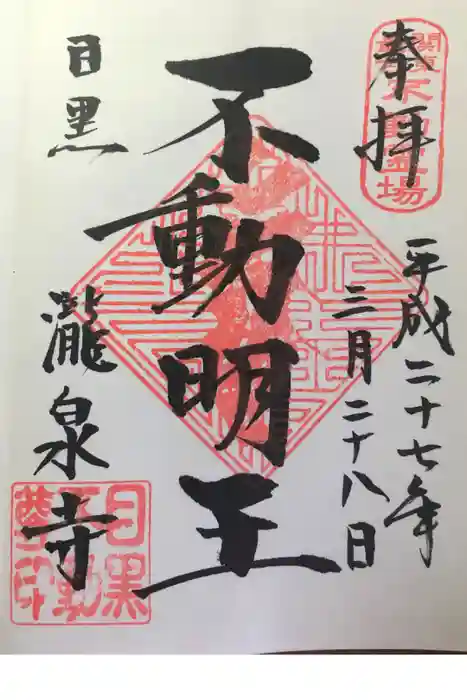 奉拝
平成二十七年
三月二十八日
不動明王
目黒
瀧泉寺
関東
不動霊場
目黒
不動